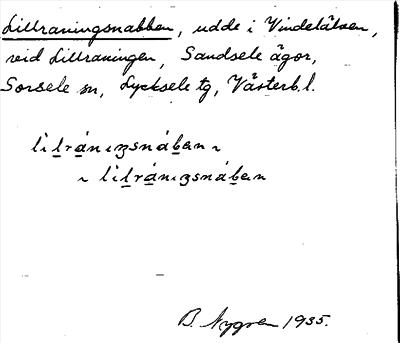 Lillraningsnabben, udde i Vindelälven,
vid Lillraningen, Sandsele ägor,
Sorsele sn, Lycksele tg, Västerb. l.
lilránıŋsnában ~
~ lilránıŋsnában
B. Nygren 1935.